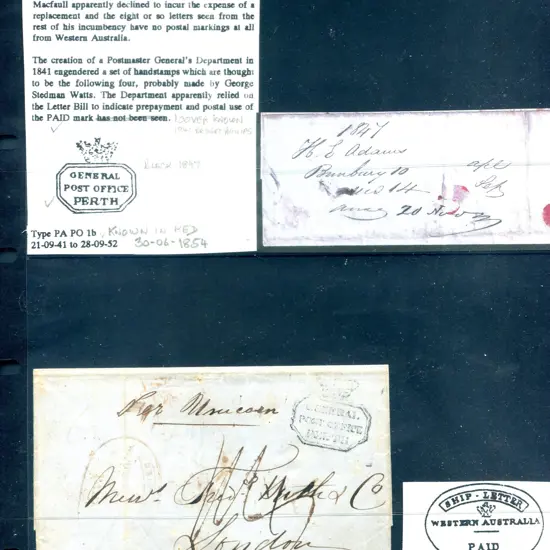 Macfaull apparently declined to incur the expense of a
replacement and the eight or so letters seen from the
rest of his incumbency have no postal markings at all
from Western Australia.
The creation of a Postmaster General's Department in
1841 engendered a set of handstamps which are thought
to be the following four, probably made by George
Stedman Watts. The Department apparently relied on
the Letter Bill to indicate prepayment and postal use of
the PAID mark has not been seen.
KNOWN
BLACK 1847
GENERAL
POST OFFICE
PERTH
Type PA PO 1b KNOWN IN RED
21-09-41 to 28-09-52 30-06-1854
1847
H E Adams
Bunbury 10
14
20 Nov
Per Unicorn
GENERAL
POST OFFICE
PERTH
Messrs & Co
London
SHIP-LETTER
WESTERN AUSTRALIA
PAID